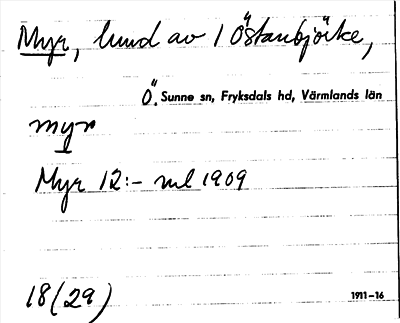 Myr, lund av 1 Östanbjörke,
Ö. Sunne sn, Fryksdals hd, Värmlands län
myr
Myr 12:- ml 1909
18(29)
1911–16